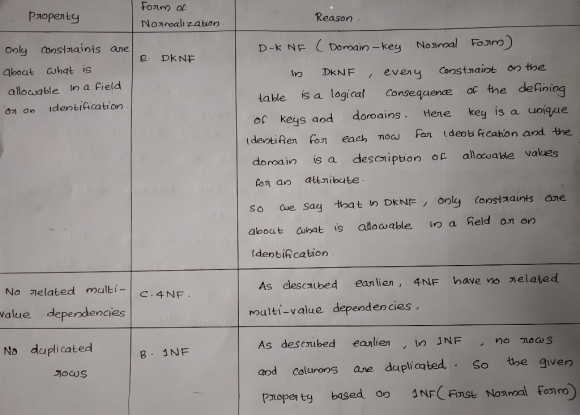 Property
Form of
Normalization
Reason
only constraints are
about what is
allowable in a field
or on identification.
E. DKNF
D-K NF (Domain-key Normal Form)
In DKNF, every constraint on the
table is a logical consequence of the defining
of keys and domains. Here key is a unique
identifier for each row for identification and the
domain is a description of allowable values
for an attribute.
so we say that in DKNF, only constraints are
about what is allowable in a field or on
identification
No related multi-
value dependencies
C. 4NF.
As described earlier, 4NF have no related
multi-value dependencies.
No duplicated
rows
B. 1NF
As described earlier, in 1NF, no rows
and columns are duplicated. So the given
property based on 1NF (First Normal form)